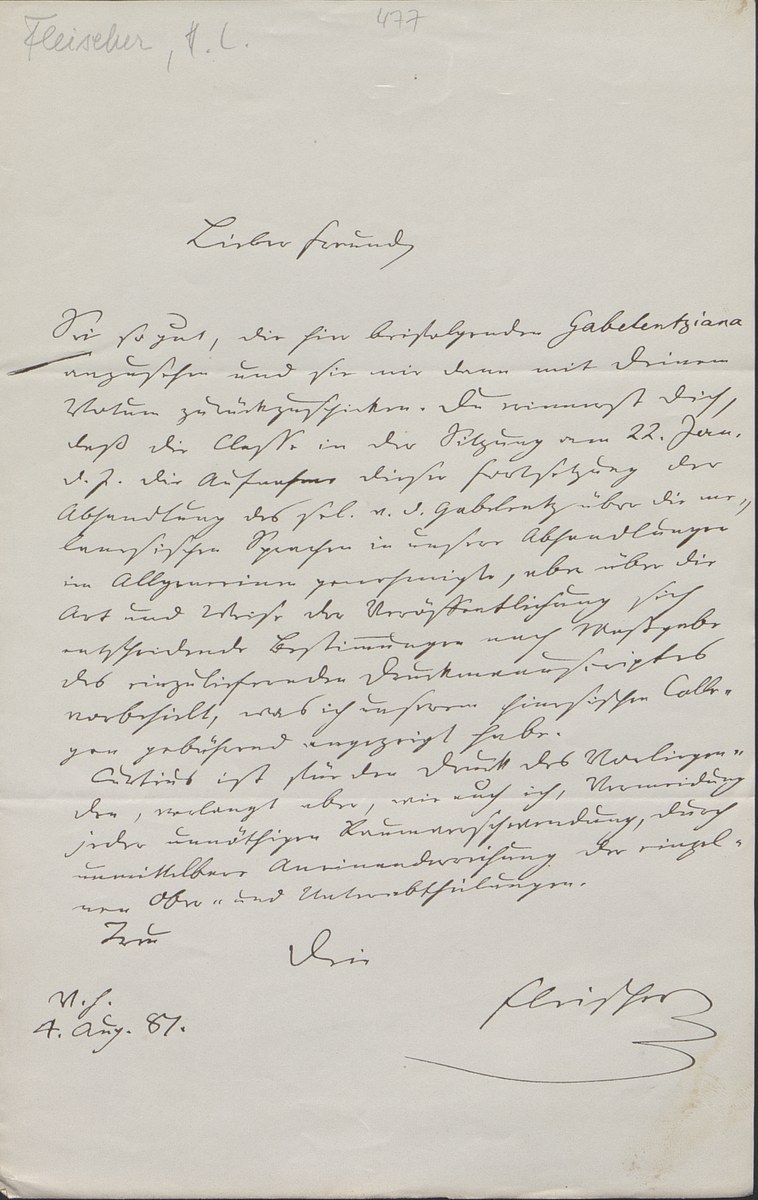 Fleischer, H. L.
477
Lieber Freund,
Sei so gut, die hier beifolgenden Gabelentziana
anzusehen und sie mir dann mit Deinem
Votum zurückzuschicken. Du erinnerst Dich,
daß die Classe in der Sitzung am 22. Jan.
d. J. die Aufnahme dieser Fortsetzung der
Abhandlung des sel. v. d. Gabelentz über die me-
lanesischen Sprachen in unsere Abhandlungen
im Allgemeinen genehmigte, aber über die
Art und Weise der Veröffentlichung sich
entscheidende Bestimmungen nach Maßgabe
des einzuliefernden Druckmanuscriptes
vorbehielt, was ich unserem chinesischen Colle-
gen gebührend angezeigt habe.
Curtius ist für den Druck des Vorliegen-
den, verlangt aber, wie auch ich, Vermeidung
jeder unnöthigen Raumverschwendung, durch
unmittelbare Aneinanderreihung der einzel-
nen Ober- und Unterabtheilungen.
Treu
Dein
Fleischer
V. H.
4. Aug. 81.